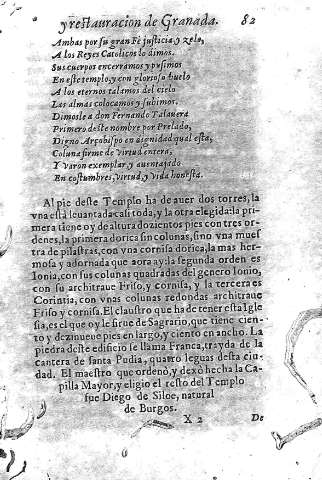 y restauracion de Granada. 82
Ambas por su gran Fè justicia, y zelo,
A los Reyes Catolicos lo dimos.
Sus cuerpos encerramos y pusimos
En este templo, y con glorioso buelo
A los eternos talamos del cielo
Las almas colocamos y subimos.
Dimosle a don Fernando Talauera
Primero deste nombre por Prelado,
Digno Arçobispo en dignidad qual esta,
Coluna firme de virtud entera,
Y varon exemplar, y auentajado
En costumbres, virtud, y vida honesta.
Al pie deste Templo ha de auer dos torres, la
vna està leuantada casi toda, y la otra elegida: la pri-
mera tiene oy de altura dozientos pies con tres or-
denes, la primera dorica sin colunas, sino vna mues
tra de pilastras, con vna cornisa dorica, la mas her-
mosa y adornada que aora ay: la segunda orden es
Ionia, con sus colunas quadradas del genero Ionio,
con su architraue Friso, y cornisa, y la tercera es
Corintia, con vnas colunas redondas architraue
Friso y cornisa. El claustro que ha de tener esta Igle
sia, es el que oy le sirue de Sagrario, que tiene cien-
to y dezinueue pies en largo, y ciento en ancho. La
piedra deste edificio se llama Franca, trayda de la
cantera de santa Pudia, quatro leguas desta ciu-
dad. El maestro que ordenò, y dexò hecha la Ca-
pilla Mayor, y eligio el resto del Templo
fue Diego de Siloe, natural
de Burgos.
X 2 De